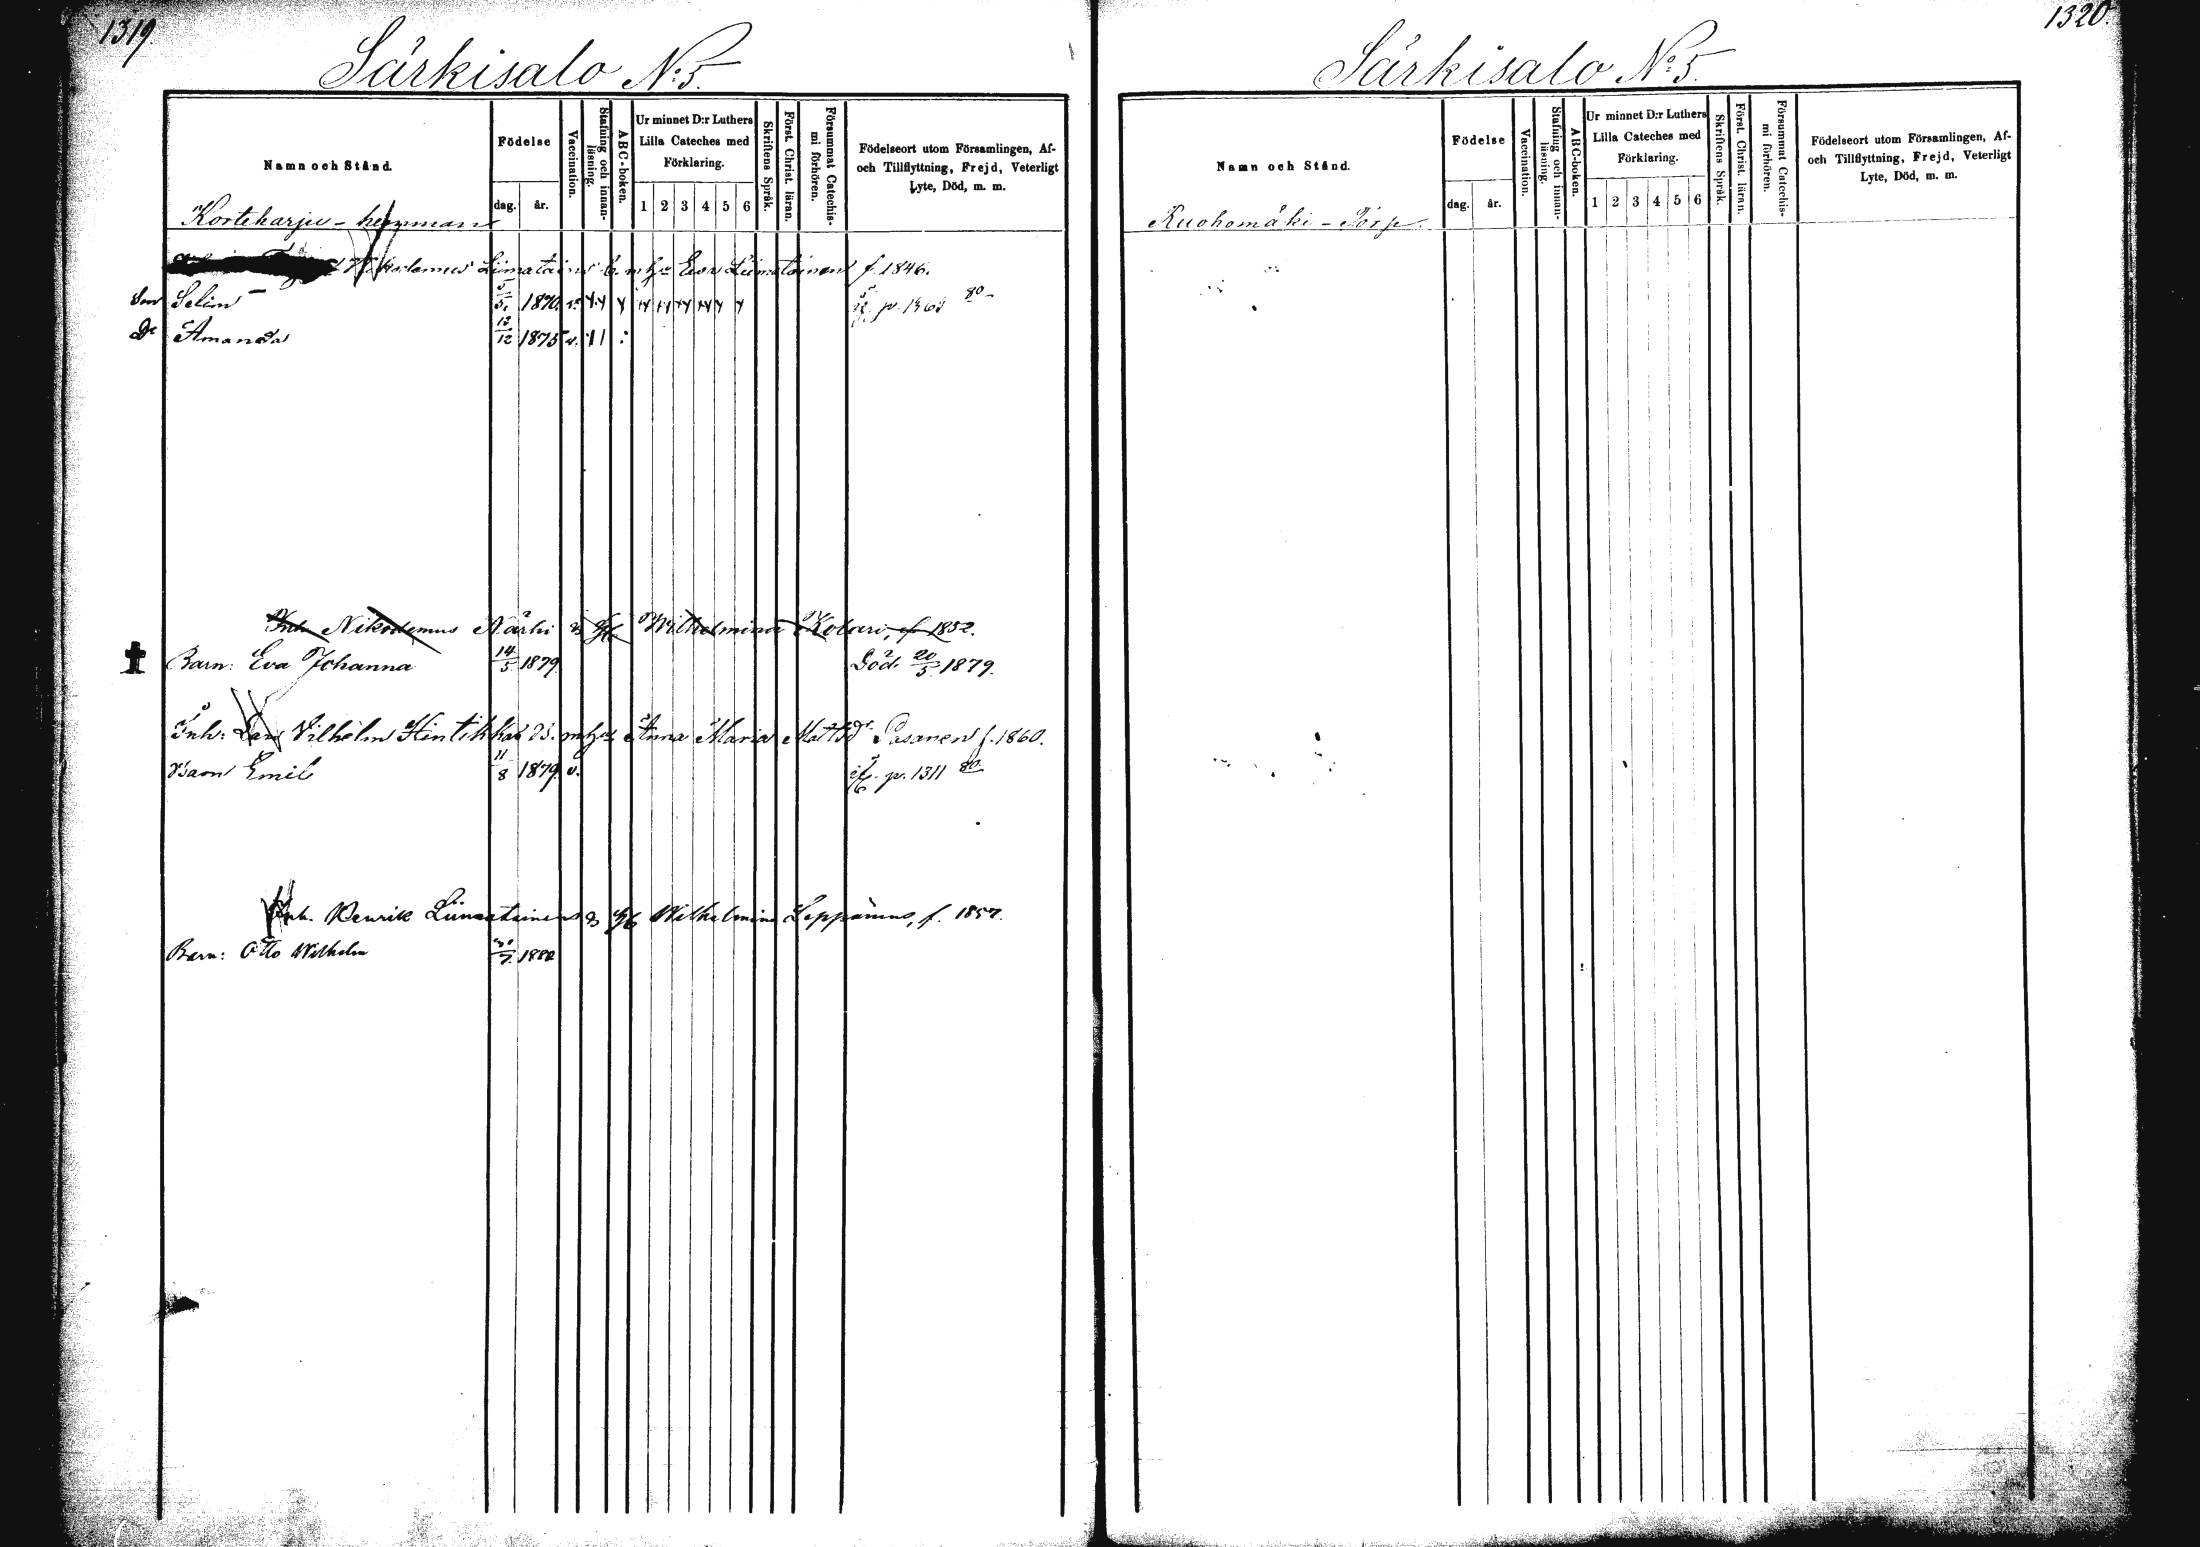 1319.
Särkisalo No. 5.
Namn och Stånd.
Födelse
dag.
år.
Vaccination.
Stafning och innanläsning.
ABC-boken.
Ur minnet D:r Luthers
Lilla Cateches med
Förklaring.
1 2 3 4 5 6
Skriftens Språk.
Först. Christ. läran.
Försummat Catechismi förhören.
Födelseort utom Församlingen, Af-
och Tillflyttning, Frejd, Veterligt
Lyte, Död, m. m.
Korteharju - hemman
Liimatainen Eva Liimatainen f. 1846.
Son Selim 5/5. 1870. v. p. 80
Dr Amanda 12/12 1875 v.
Inh. Nikodemus Närhi Wilhelmina Kotari, f. 1852.
Barn: Eva Johanna 14/5 1879. Död. 20/5 1879.
Inh: Lars Vilhelm Hintikka Anna Maria Mattsdr Pasanen f. 1860.
Barn Emil 11/8 1879. v. p. 1311 80
Inh. Henrik Liimatainen Wilhelmina Leppänen, f. 1857.
Barn: Otto Wilhelm
1320.
Särkisalo No. 5.
Namn och Stånd.
Födelse
dag.
år.
Vaccination.
Stafning och innanläsning.
ABC-boken.
Ur minnet D:r Luthers
Lilla Cateches med
Förklaring.
1 2 3 4 5 6
Skriftens Språk.
Först. Christ. läran.
Försummat Catechismi förhören.
Födelseort utom Församlingen, Af-
och Tillflyttning, Frejd, Veterligt
Lyte, Död, m. m.
Kuohomäki - Torp.